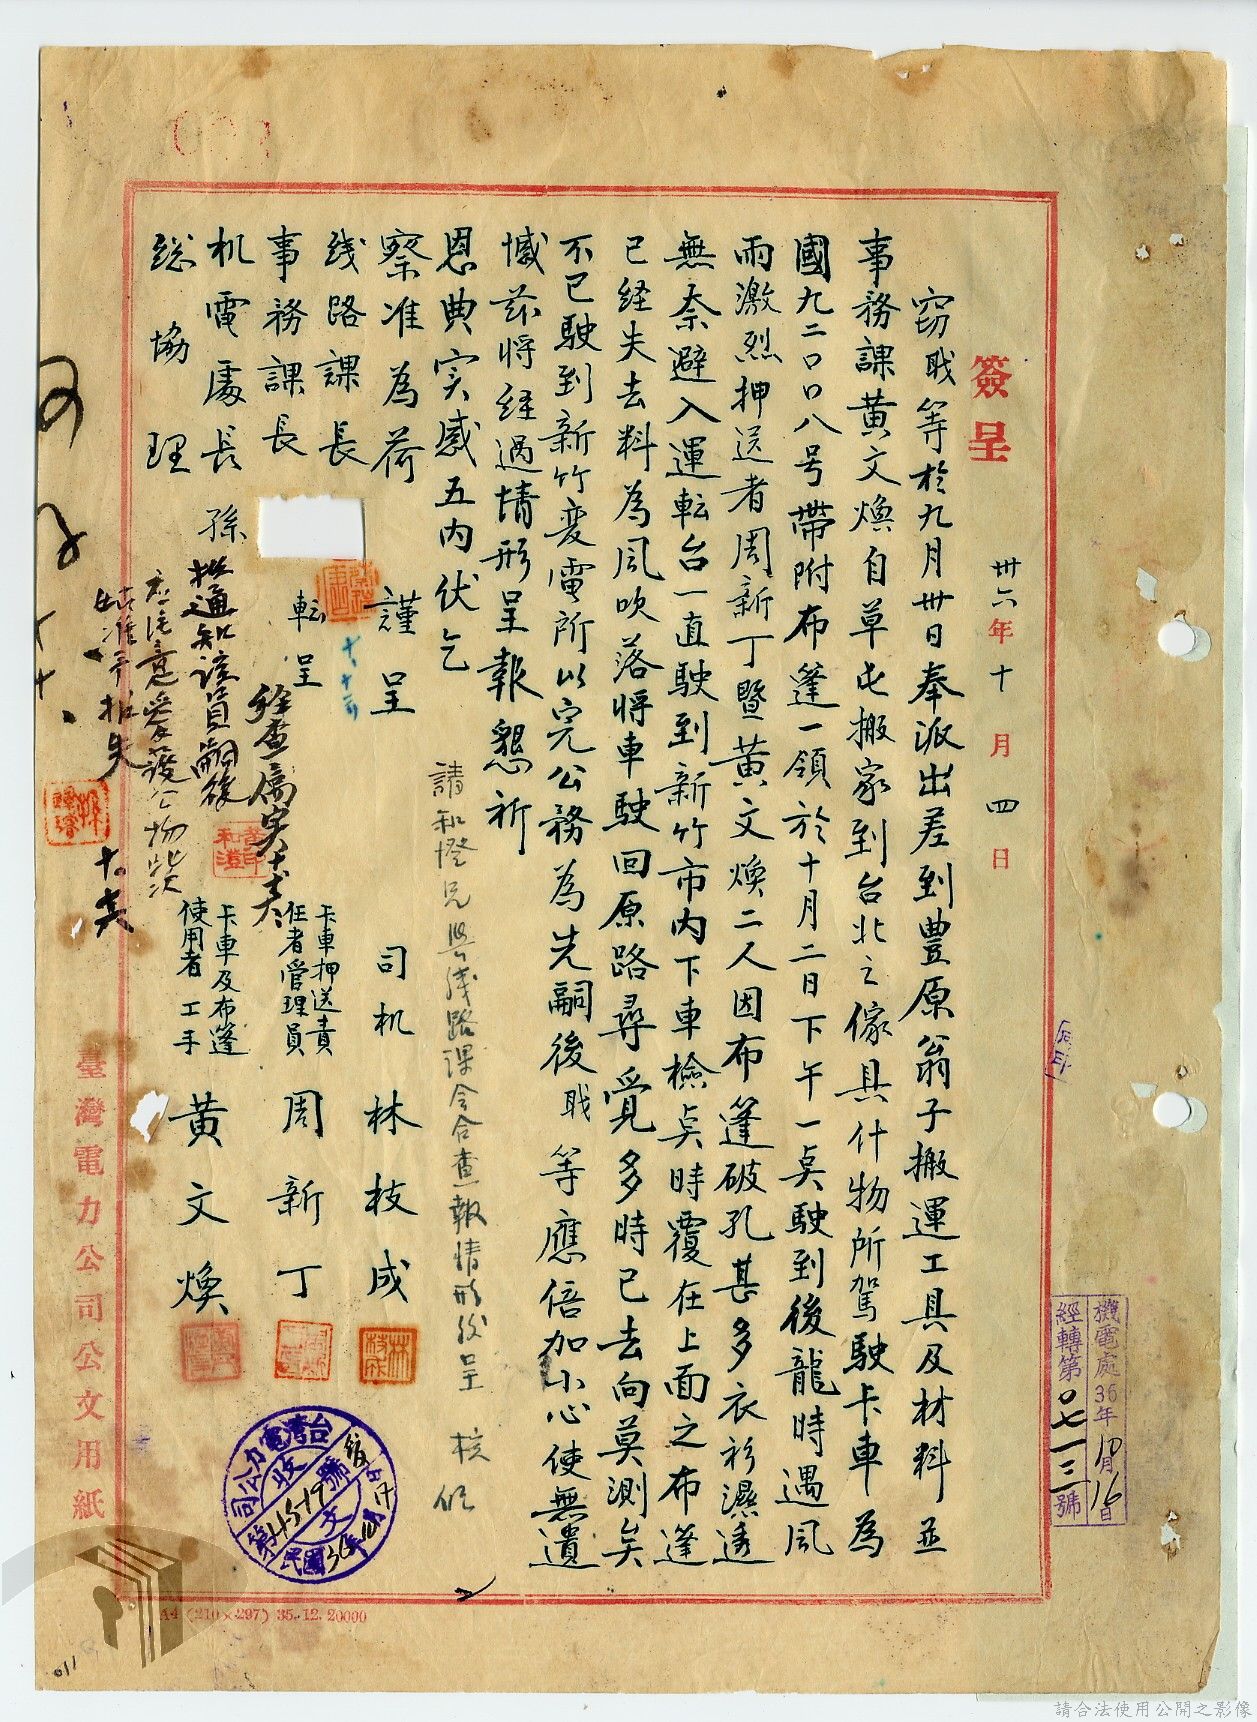 簽呈
卅六年十月四日
窃戝等於九月卅日奉派出差到豊原翁子搬運工具及材料並
事務課黃文煥自草屯搬家到台北之傢具什物所駕駛卡車為
國九二〇〇八号帶附布篷一領於十月二日下午一点駛到後龍時遇風
雨激烈押送者周新丁暨黃文煥二人因布篷破孔甚多衣衫濕透
無奈避入運転台一直駛到新竹市內下車檢点時覆在上面之布篷
已経失去料為風吹落將車駛回原路尋覓多時已去向莫測矣
不已駛到新竹変電所以完公務為先嗣後戝等應倍加小心使無遺
憾茲將経過情形呈報懇祈
恩典实感五內伏乞
察准為荷
謹呈
线路課長
転呈
事務課長
机電處長孫
総協理
司机 林枝成
卡車押送責
任者管理員 周新丁
卡車及布篷
使用者工手 黃文煥
請和澄兄與线路課会合查報情形後呈 核
経查属实
擬通知該員嗣後
應注意愛護公物此次
姑准予报失
機電處36年10月16日
經轉第〇七一三號
台灣電力公司
收文
第4519號
民國36年10月17
臺灣電力公司公文用紙
A4 (210×297) 35. 12. 20000
011
請合法使用公開之影像